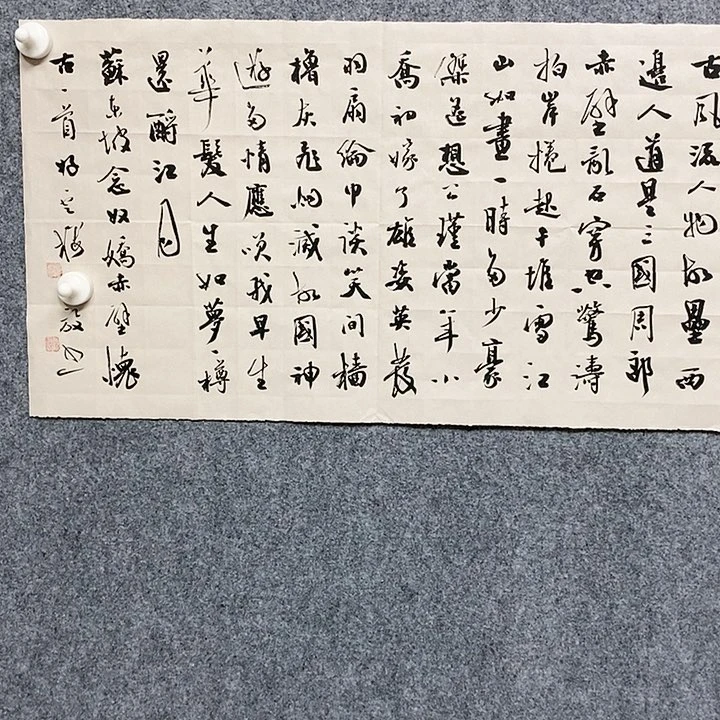 古風流人物故壘西
邊人道是三國周郎
赤壁亂石穿空驚濤
拍岸捲起千堆雪江
山如畫一時多少豪
傑遥想公瑾當年小
喬初嫁了雄姿英發
羽扇綸巾談笑間檣
櫓灰飛烟滅故國神
遊多情應笑我早生
華髮人生如夢一樽
還酹江月
蘇東坡念奴嬌赤壁懷
古一首